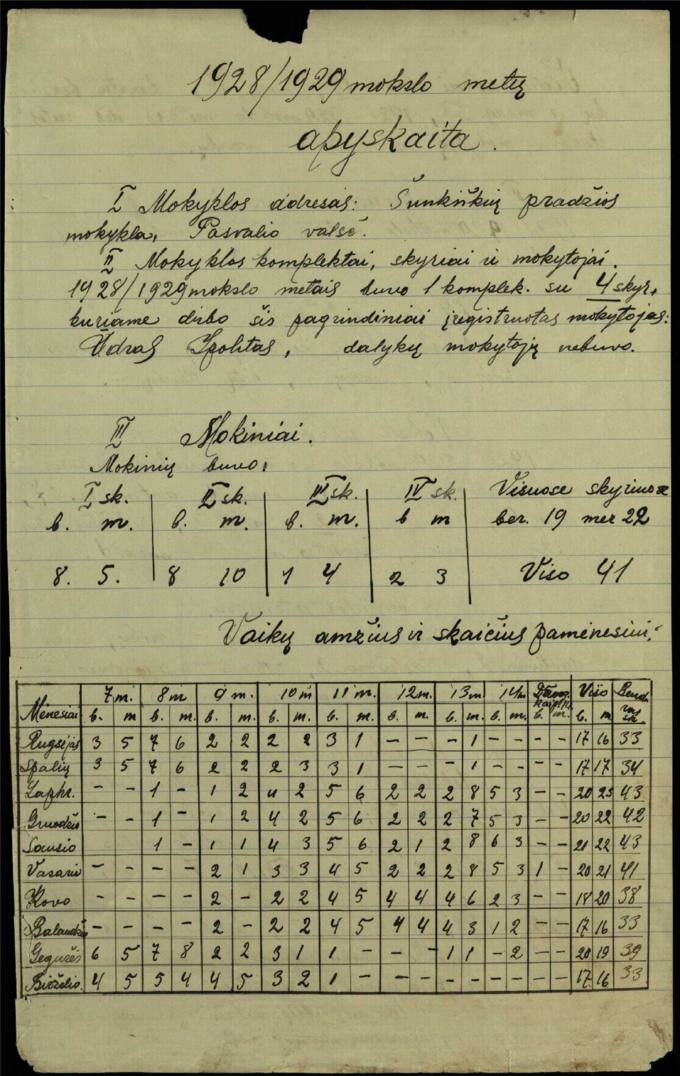 1928/1929 mokslo metų
apyskaita.
I Mokyklos adresas: Šunkiškių pradžios
mokykla, Pasvalio valsč.
II Mokyklos komplektai, skyriai ir mokytojai.
1928/1929 mokslo metais buvo 1 komplek. su 4 skyr.
kuriame dirbo šis pagrindiniai įregistruotas mokytojas:
Udras Ipolitas, dalykų mokytojų nebuvo.
III Mokiniai.
Mokinių buvo:
I sk. II sk. III sk. IV sk. Visuose skyriuose
b. m. b. m. b. m. b m ber. 19 mer 22
8. 5. 8 10 1 4 2 3 Viso 41
Vaikų amžius ir skaičius pamėnesiui:
7 m. 8 m 9 m. 10 m 11 m. 12 m. 13 m 14 m Viso
Mėnesiai b. m b. m. b. m. b. m. b. m. b. m. b. m. b. m. b. m. b. m
Rugsėjis 3 5 7 6 2 2 2 2 3 1 – – – 1 – – – – 17 16 33
Spalių 3 5 7 6 2 2 2 3 3 1 – – – 1 – – – – 17 17 34
Lapkr. – – 1 – 1 2 4 2 5 6 2 2 2 8 5 3 – – 20 23 43
Gruodžio – – 1 – 1 2 4 2 5 6 2 2 2 7 5 3 – – 20 22 42
Sausio 1 – 1 1 4 3 5 6 2 1 2 8 6 3 – – 21 22 43
Vasario – – – – 2 1 3 3 4 5 2 2 2 8 5 3 1 – 20 21 41
Kovo – – – – 2 – 2 2 4 5 4 4 4 6 2 3 – – 18 20 38
Balandžio – – – – 2 – 2 2 4 5 4 4 4 3 1 2 – – 17 16 33
Gegužės 6 5 7 8 2 2 3 1 1 – – – 1 1 – 2 – – 20 19 39
Birželio 4 5 5 4 4 5 3 2 1 – – – – – – – – – 17 16 33